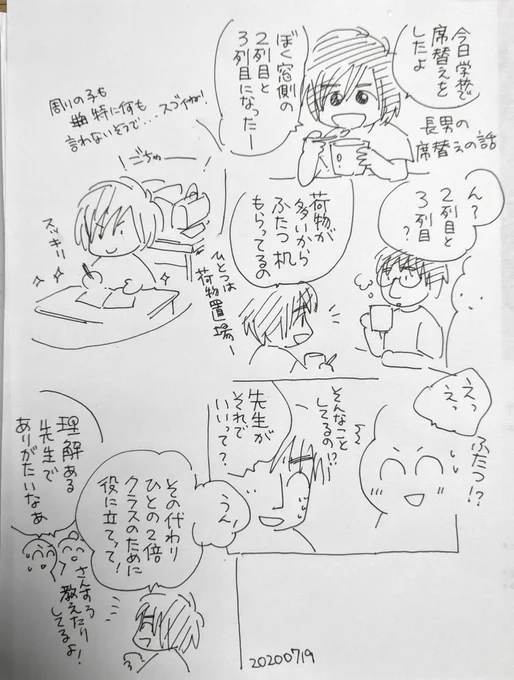 今日学校で
席替えを
したよ
ぼく窓側の
2列目と
3列目になったー
長男の
席替えの話
ん?
2列目と
3列目
?
荷物が
多いから
ふたつ机
もらってるの
ひとつは
荷物置場ー
周りの子も
特に何も
言われないそうで...スゴイわ!
ごちゃ
スッキリ
...
えっ
えっ
ふたつ!?
そんなこと
してるの!?
先生が
それで
いいって?
うん
その代わり
ひとの2倍
クラスのために
役に立てって!
さんすう
教えたり
してるよ!
理解ある
先生で
ありがたいなあ
20200719